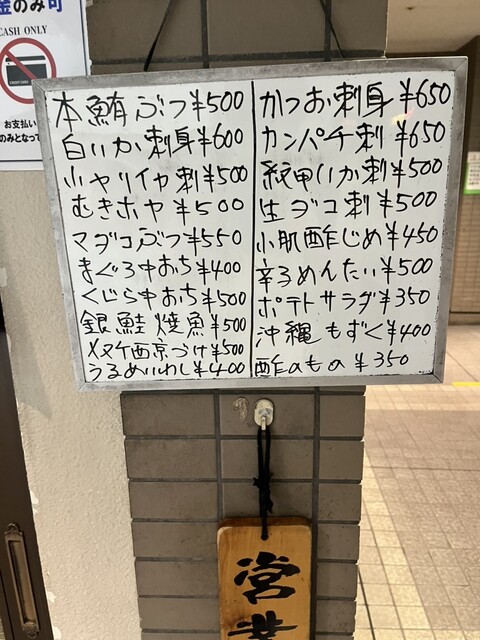 金のみ可
CASH ONLY
お支払い
のみとなって
本鮪ぶつ¥500
白いか刺身¥600
小ヤリイカ刺¥500
むきホヤ¥500
マダコぶつ¥550
まぐろ中おち¥400
くじら中おち¥500
銀鮭焼魚¥500
メヌケ西京づけ¥500
うるめいわし¥400
かつお刺身¥650
カンパチ刺¥650
紋甲いか刺¥500
生ダコ刺¥500
小肌酢じめ¥450
辛子めんたい¥500
ポテトサラダ¥350
沖縄もずく¥400
酢のもの¥350
営業